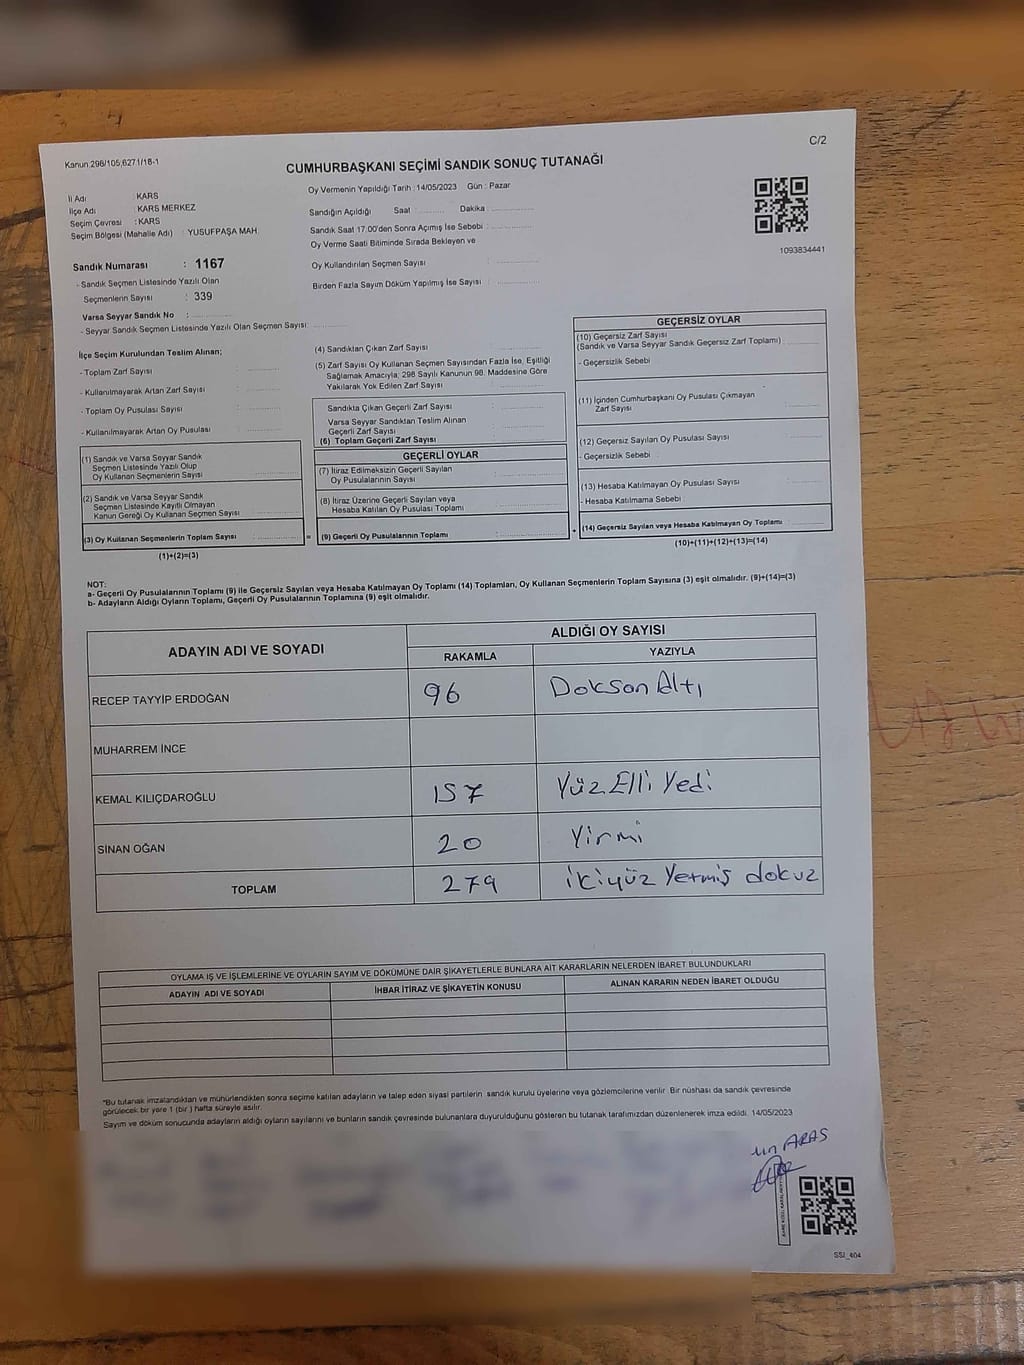 Kanun 298/105,6271/18-1
C/2
CUMHURBAŞKANI SEÇİMİ SANDIK SONUÇ TUTANAĞI
İl Adı : KARS
İlçe Adı : KARS MERKEZ
Seçim Çevresi : KARS
Seçim Bölgesi (Mahalle Adı) : YUSUFPAŞA MAH.
Sandık Numarası : 1167
- Sandık Seçmen Listesinde Yazılı Olan
Seçmenlerin Sayısı : 339
Varsa Seyyar Sandık No :
- Seyyar Sandık Seçmen Listesinde Yazılı Olan Seçmen Sayısı:
Oy Vermenin Yapıldığı Tarih : 14/05/2023 Gün : Pazar
Sandığın Açıldığı Saat : Dakika :
Sandık Saat 17.00'den Sonra Açımış İse Sebebi :
Oy Verme Saati Bitiminde Sırada Bekleyen ve
Oy Kullandırılan Seçmen Sayısı :
Birden Fazla Sayım Döküm Yapılmış İse Sayısı :
1093834441
İlçe Seçim Kurulundan Teslim Alınan;
- Toplam Zarf Sayısı :
- Kullanılmayarak Artan Zarf Sayısı :
- Toplam Oy Pusulası Sayısı :
- Kullanılmayarak Artan Oy Pusulası :
(1) Sandık ve Varsa Seyyar Sandık
Seçmen Listesinde Yazılı Olup
Oy Kullanan Seçmenlerin Sayısı :
(2) Sandık ve Varsa Seyyar Sandık
Seçmen Listesinde Kayıtlı Olmayan
Kanun Gereği Oy Kullanan Seçmen Sayısı :
(3) Oy Kullanan Seçmenlerin Toplam Sayısı :
(1)+(2)=(3)
=
(4) Sandıktan Çıkan Zarf Sayısı :
(5) Zarf Sayısı Oy Kullanan Seçmen Sayısından Fazla İse, Eşitliği
Sağlamak Amacıyla, 298 Sayılı Kanunun 98. Maddesine Göre
Yakılarak Yok Edilen Zarf Sayısı :
Sandıkta Çıkan Geçerli Zarf Sayısı :
Varsa Seyyar Sandıktan Teslim Alınan
Geçerli Zarf Sayısı :
(6) Toplam Geçerli Zarf Sayısı :
GEÇERLİ OYLAR
(7) İtiraz Edilmeksizin Geçerli Sayılan
Oy Pusulalarının Sayısı :
(8) İtiraz Üzerine Geçerli Sayılan veya
Hesaba Katılan Oy Pusulası Toplamı :
(9) Geçerli Oy Pusulalarının Toplamı :
+
GEÇERSİZ OYLAR
(10) Geçersiz Zarf Sayısı
(Sandık ve Varsa Seyyar Sandık Geçersiz Zarf Toplamı) :
- Geçersizlik Sebebi :
(11) İçinden Cumhurbaşkanı Oy Pusulası Çıkmayan
Zarf Sayısı :
(12) Geçersiz Sayılan Oy Pusulası Sayısı :
- Geçersizlik Sebebi :
(13) Hesaba Katılmayan Oy Pusulası Sayısı :
- Hesaba Katılmama Sebebi :
(14) Geçersiz Sayılan veya Hesaba Katılmayan Oy Toplamı :
(10)+(11)+(12)+(13)=(14)
NOT:
a- Geçerli Oy Pusulalarının Toplamı (9) ile Geçersiz Sayılan veya Hesaba Katılmayan Oy Toplamı (14) Toplamları, Oy Kullanan Seçmenlerin Toplam Sayısına (3) eşit olmalıdır. (9)+(14)=(3)
b- Adayların Aldığı Oyların Toplamı, Geçerli Oy Pusulalarının Toplamına (9) eşit olmalıdır.
ADAYIN ADI VE SOYADI
ALDIĞI OY SAYISI
RAKAMLA YAZIYLA
RECEP TAYYİP ERDOĞAN 96 Doksan Altı
MUHARREM İNCE
KEMAL KILIÇDAROĞLU 157 Yüz Elli Yedi
SİNAN OĞAN 20 Yirmi
TOPLAM 279 ikiyüz Yetmiş dokuz
OYLAMA İŞ VE İŞLEMLERİNE VE OYLARIN SAYIM VE DÖKÜMÜNE DAİR ŞİKAYETLERLE BUNLARA AİT KARARLARIN NELERDEN İBARET BULUNDUKLARI
ADAYIN ADI VE SOYADI İHBAR İTİRAZ VE ŞİKAYETİN KONUSU ALINAN KARARIN NEDEN İBARET OLDUĞU
*Bu tutanak imzalandıktan ve mühürlendikten sonra seçime katılan adayların ve talep eden siyasi partilerin sandık kurulu üyelerine veya gözlemcilerine verilir. Bir nüshası da sandık çevresinde
görülecek bir yere 1 (bir ) hafta süreyle asılır.
Sayım ve döküm sonucunda adayların aldığı oyların sayılarını ve bunların sandık çevresinde bulunanlara duyurulduğunu gösteren bu tutanak tarafımızdan düzenlenerek imza edildi. 14/05/2023
ARAS
SSI_404